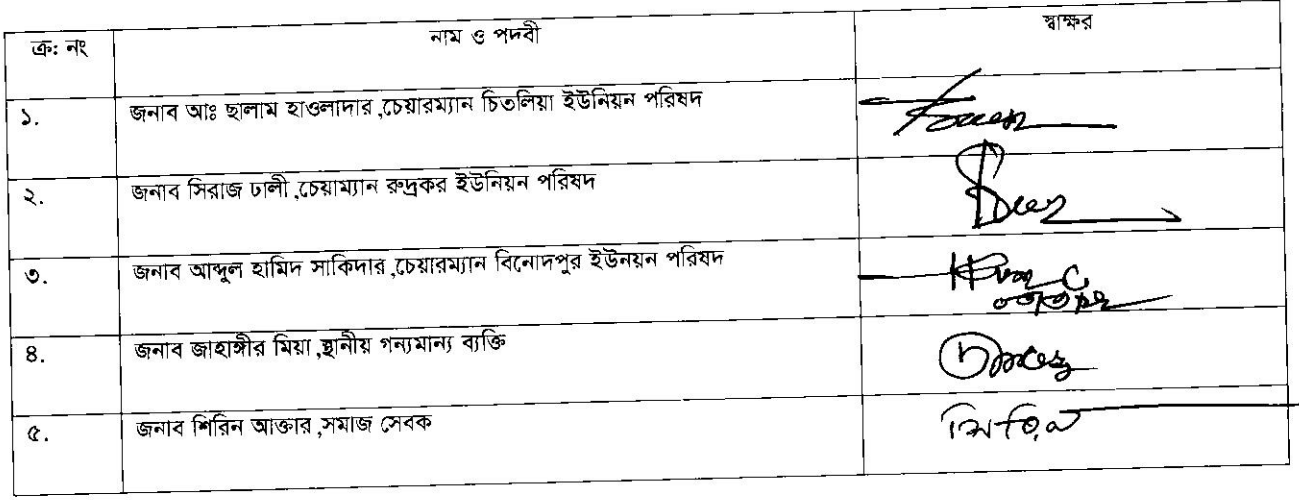 ক্র: নং নাম ও পদবী স্বাক্ষর
১. জনাব আঃ ছালাম হাওলাদার ,চেয়ারম্যান চিতলিয়া ইউনিয়ন পরিষদ
২. জনাব সিরাজ ঢালী ,চেয়াম্যান রুদ্রকর ইউনিয়ন পরিষদ
৩. জনাব আব্দুল হামিদ সাকিদার ,চেয়ারম্যান বিনোদপুর ইউনয়ন পরিষদ
৪. জনাব জাহাঙ্গীর মিয়া ,স্থানীয় গন্যমান্য ব্যক্তি
৫. জনাব শিরিন আক্তার ,সমাজ সেবক